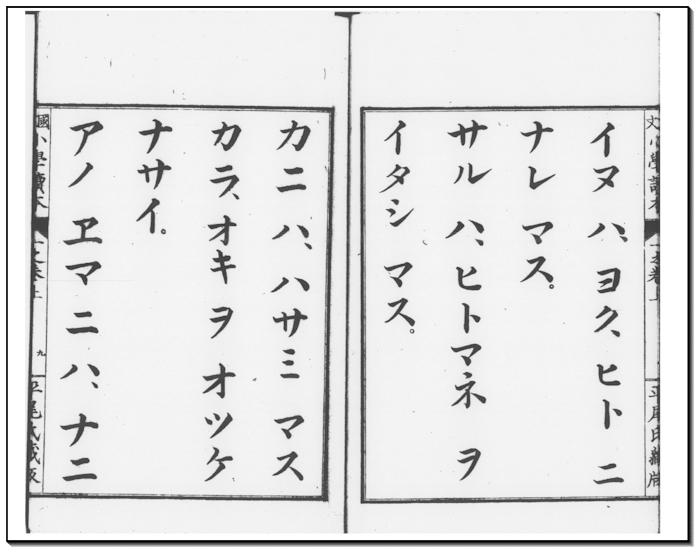 イヌ ハ、ヨク、ヒト ニ
ナレ マス。
サル ハ、ヒトマネ ヲ
イタシ マス。
カニ ハ、ハサミ マス
カラ、オキ ヲ オツケ
ナサイ。
アノ ヱマ ニ ハ、ナニ
小學讀本
平尾氏藏版